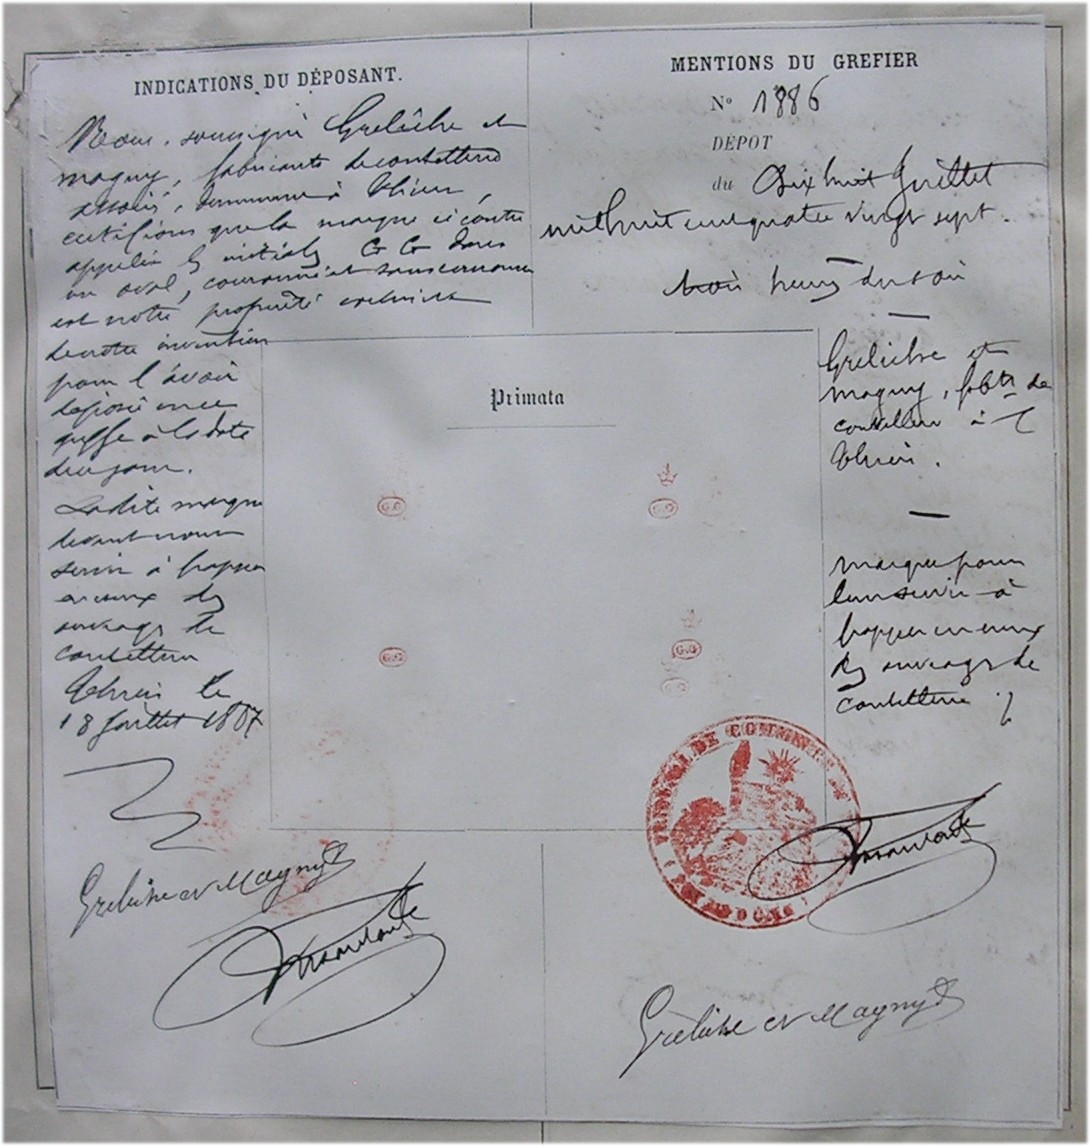 INDICATIONS DU DÉPOSANT.
Nous, soussigné Grélèche et
Magny, fabricants de coutellerie
associé, demeurant à Thiers,
certifions que la marque ci contre
appelée les initiales G G dans
un oval, couronné et sans couronne
est notre propriété exclusive
de notre invention
pour l'avoir
déposé en ce
greffe à la date
de ce jour.
Ladite marque
devant nous
servir à frapper
en creux des
ouvrages de
coutellerie
Thiers le
18 Juillet 1887
et Magny
MENTIONS DU GREFIER
N° 1886
DÉPOT
du Dix huit Juillet
mil huit cent quatre vingt sept.
trois heures du soir
et
Magny, fabts de
coutellerie à
Thiers.
marque pour
leur servir à
frapper en creux
des ouvrages de
coutellerie
Primata
G.G
G.G
G.G
G.G
TRIBUNAL DE COMMERCE DE
et Magny